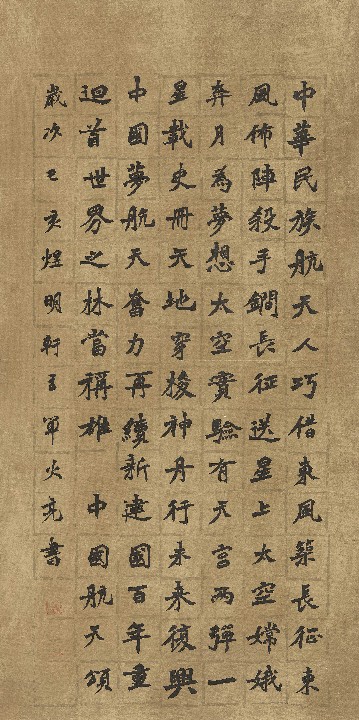 中華民族航天人巧借東風築長征東
風佈陣殺手鐧長征送星上太空嫦娥
奔月為夢想太空實驗有天宮兩彈一
星載史冊天地穿梭神丹行未來復興
中國夢航天奮力再續新建國百年重
迴首世界之林當稱雄 中國航天頌
歲次己亥煜明軒主軍火亮書